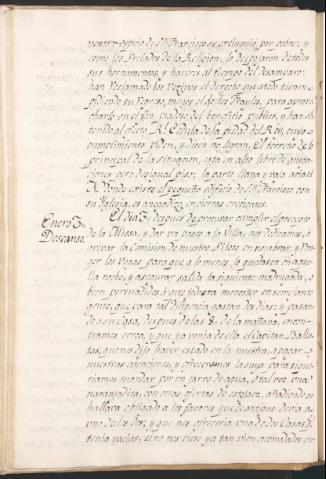 vento y oficio de Sn. Francisco se extinguió por pobre, y
como los Prelados de la Religion, lo despojaron de todos
sus hornamentos, y haveres al tiempo del desamparo:
han reclamado los Vezinos el derecho que a todo tienen
pidiendo su regreso, menos el de los Frayles, para aprove
charlo en el fin piadoso del beneficio publico, y han ob
tenido al efecto Rl. Cedula de la piedad del Rey, cuyo
cumplimiento piden, y no logran. El terreno de lo
principal de la situacion, está en alto libre de
ciones pero desigual piso; la parte llana y baja acia el
donde existe el pequeño edificio de Sn. Francisco con
su Yglesia, es anegadizo en ciertas crecientes.
Enero 3,,
Descanso
El dia 3,, despues de procurar cumplir el precepto
de la Missa, y dar un paseo a la Villa, nos dedicamos, á
avivar la Comision de nuestro Piloto en nombrar, y
ger los Vogas para que a lo menos, lo quedasen en aque
lla noche, y asegurar salida la siguiente madrugada, o
bien persuadidos á que
gente, que para tal diligencia gastan dos dias: y pasan
do a su Casa, despues de las 8,, de la mañana, encon
tramos cerca, y que ya venia de ella el Capitan
tas, quien dijo haver estado en la nuestra, a pagar
nuestras atenciones, y ofrecernos la suya para si que
riamos mandar por un jarro de agua, ó tal vez una
naranjadita, con otras ofertas de este jaez, añadiendo se
hallava obligado a los favores que de antiguo devia a
uno de los dos; y que nos ofreceria una de dos Casas q.
tenia vacias, si no nos viese ya tan bien acomodados en